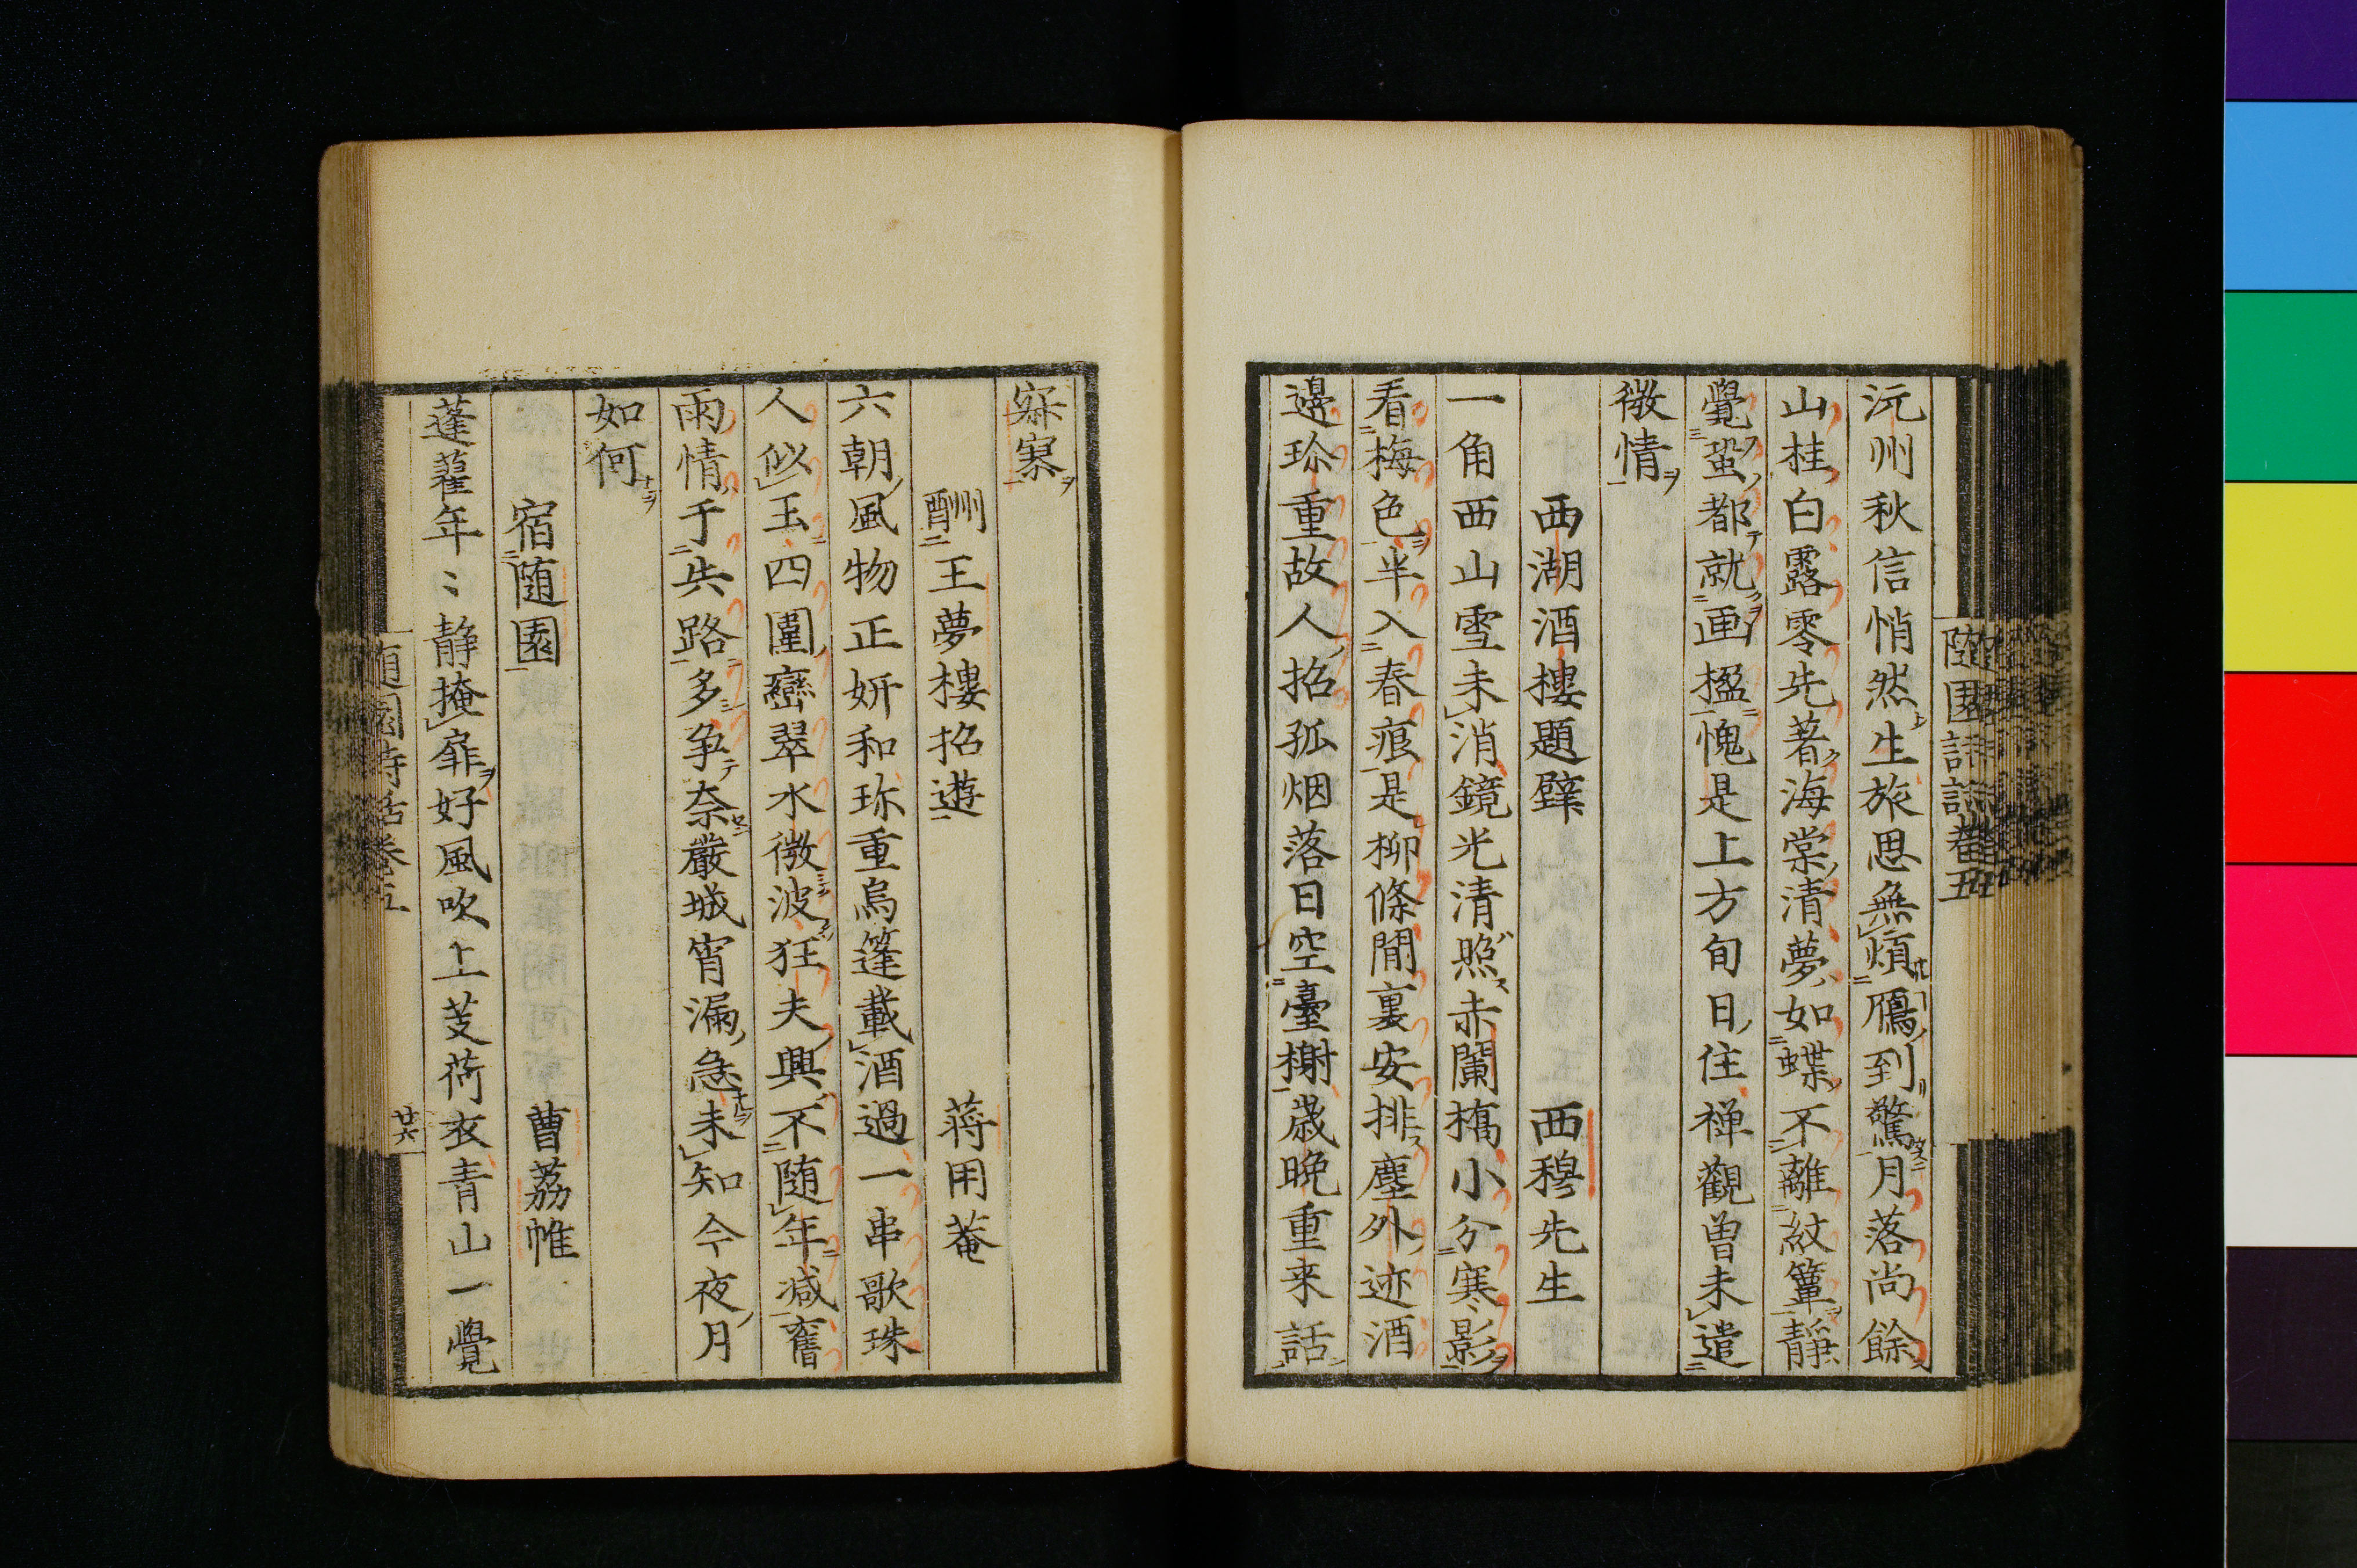 沅州秋信悄然生旅思無煩鴈到驚月落尚餘
山桂白露零先著海棠清夢如蝶不離紋簟靜
覺蛩都就画楹愧是上方旬日住禅觀曽未遣
微情
西湖酒樓題壁 西穆先生
一角西山雪未消鏡光清照赤闌橋小分寒影
看梅色半入春痕是柳條閒裏安排塵外迹酒
邊珍重故人招孤烟落日空臺榭歳晩重来話
寂寞
酬王夢樓招遊 蒋用菴
六朝風物正妍和珎重烏篷載酒過一串歌珠
人似玉四圍巒翠水微波狂夫興不随年减舊
雨情于此路多争奈嚴城宵漏急未知今夜月
如何
宿随園 曹荔帷
蓬藋年〻静掩扉好風吹上芰荷衣青山一覺
随園詩話巻五
廿六